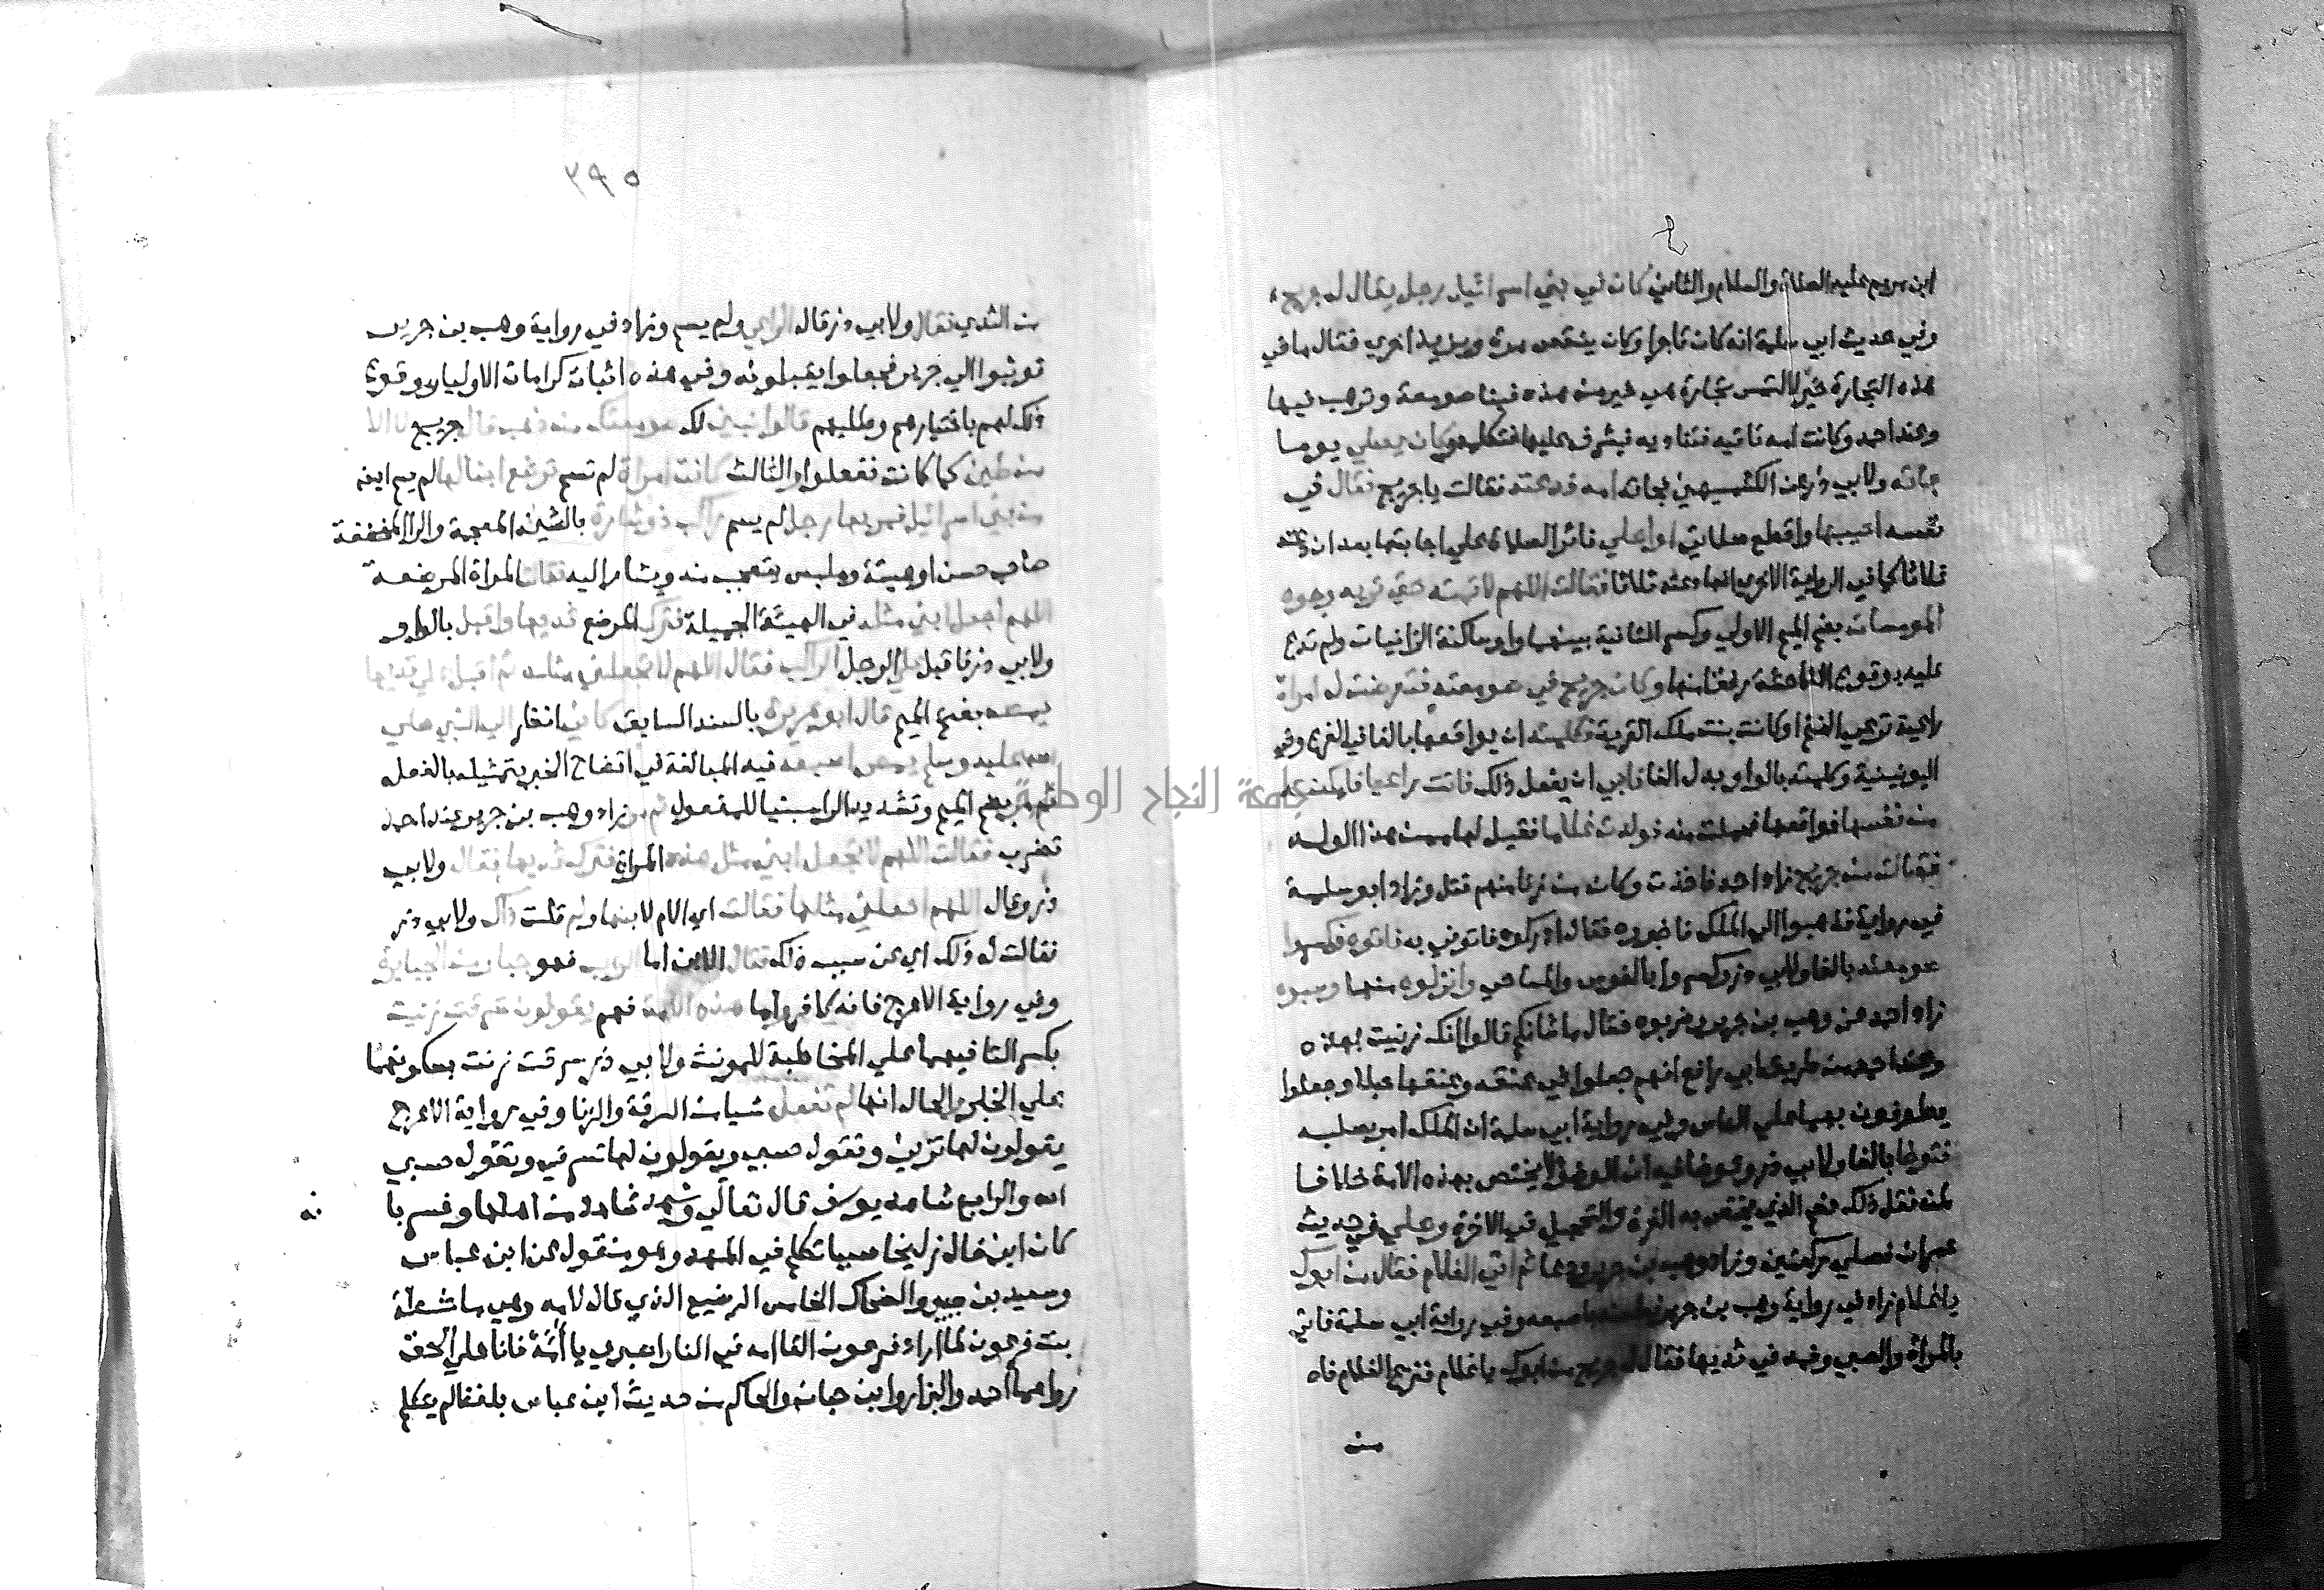 ابن مريم عليه الصلاة والسلام والثاني كان في بني اسرائيل رجل يقال له جريج
وفي حديث ابي سلمة انه كان تاجرا وكان ينقص مرة ويزيد اخري فقال ما في
هذه التجارة خير لالتمس تجارة هي خير من هذه فبنا صومعة وترهب فيها
وعند احمد وكانت امه تاتيه فتناديه فيشرف عليها فتكلمه وكان يصلي يوما
جاته ولابي ذر عن الكشميهني فجاته امه فدعته فقالت يا جريج فقال في
نفسه اجيبها واقطع صلاتي او اصلي فاثر الصلاة علي اجابتها بعد ان دعته
ثلاثا كما في الرواية الاخري انها دعته ثلاثا فقالت اللهم لا تمته حتي تريه وجوه
المومسات بضم الميم الاولي وكسر الثانية بينهما واو ساكنة الزانيات ولم تدع
عليه بوقوع الفاحشة رفقا منها وكان جريج في صومعته فتعرضت له امراة
راعية ترعي الغنم او كانت بنت ملك القرية فكلمته ان يواقعها بالفا في الفرع وفي
اليونينية وكلمته بالواو بدل الفا فابي ان يفعل ذلك فاتت راعيا فامكنته
من نفسها فواقعها فحملت منه فولدت غلاما فقيل لها ممن هذا الولد
فقالت من جريج زاد احمد فاخذت وكان من زنا منهم قتل وزاد ابو سلمة
في رواية فذهبوا الي الملك فاخبروه فقال ادركوه فاتوني به فاتوه فكسروا
صومعته بالفا ولابي ذر وكسروا بالفوس والمساحي وانزلوه منها وسبوه
زاد احمد عن وهب بن جرير وضربوه فقال ما شانكم قالوا انك زنيت بهذه
وعند احمد من طريق ابي رافع انهم جعلوا في عنقه وعنقها حبلا وجعلوا
يطوفون بهما علي الناس وفي رواية ابي سلمة ان الملك امر بصلبه
فتوضا بالفا ولابي ذر وتوضا فيه ان الوضوء لا يختص بهذه الامة خلافا
لمن نقل ذلك نعم الذي يختص به الغرة والتحجيل في الاخرة وصلي في حديث
عمران فصلي ركعتين وزاد وهب بن جرير ودعا ثم اتي الغلام فقال من ابوك
يا غلام زاد في رواية وهب بن جرير فطعنه باصبعه وفي رواية ابي سلمة فاتي
بالمراة والصبي وفمه في ثديها فقال له جريج من ابوك يا غلام فنزع الغلام فاه
من
٣٩٥
من الثدي فقال ولابي ذر قال الراعي ولم يسم وزاد في رواية وهب بن جرير
فوثبوا الي جريج فجعلوا يقبلونه وفي هذه اثبات كرامات الاوليا ووقوع
ذلك لهم باختيارهم وطلبهم قالوا نبني لك صومعتك من ذهب قال جريج لا الا
من طين كما كانت ففعلوا والثالث كانت امراة لم تسم ترضع ابنا لها لم يسم ايضا
من بني اسرائيل فمر بها رجل لم يسم راكب ذو شارة بالشين المعجمة والرا المخففة
صاحب حسن او هيئة وملبس يتعجب منه ويشار اليه فقالت المراة المرضعة
اللهم اجعل ابني مثله في الهيئة الجميلة فترك المرضع ثديها واقبل بالواو
ولابي ذر فاقبل علي الرجل الراكب فقال اللهم لا تجعلني مثله ثم اقبل علي ثديها
يمصه بفتح الميم قال ابو هريرة بالسند السابق كاني انظر الي النبي صلي
الله عليه وسلم يمص اصبعه فيه المبالغة في اتضاح الخبر بتمثيله بالفعل
ثم مر بضم الميم وتشديد الرا مبنيا للمفعول بامة زاد وهب بن جرير عند احمد
تضرب فقالت اللهم لا تجعل ابني مثل هذه المراة فترك ثديها فقال ولابي
ذر وقال اللهم اجعلني مثلها فقالت اي الام لابنها ولم قلت ذاك ولابي ذر
فقالت له ذلك اي عن سبب ذلك فقال الابن اما الراكب فهو جبار من الجبابرة
وفي رواية الاعرج فانه كافر واما هذه الامة فهم يقولون سرقت زنيت
بكسر التا فيهما علي المخاطبة للمونث ولابي ذر سرقت زنت بسكونهما
علي الخبر والحال انها لم تفعل شيا من السرقة والزنا وفي رواية الاعرج
يقولون لها تزني وتقول حسبي ويقولون لها تسرق وتقول حسبي
الله والرابع شاهد يوسف قال تعالي وشهد شاهد من اهلها وفسر با
كان ابن خال زليخا صبيا تكلم في المهد وهو منقول عن ابن عباس
وسعيد بن جبير والضحاك الخامس الرضيع الذي قال لامه وهي ماشطة
بنت فرعون لما اراد فرعون القا امه في النار اصبري يا أمّه فانا علي الحق
رواهما احمد والبزار وابن حبان والحاكم من حديث ابن عباس بلفظ لم يتكلم
جامعة النجاح الوطنية